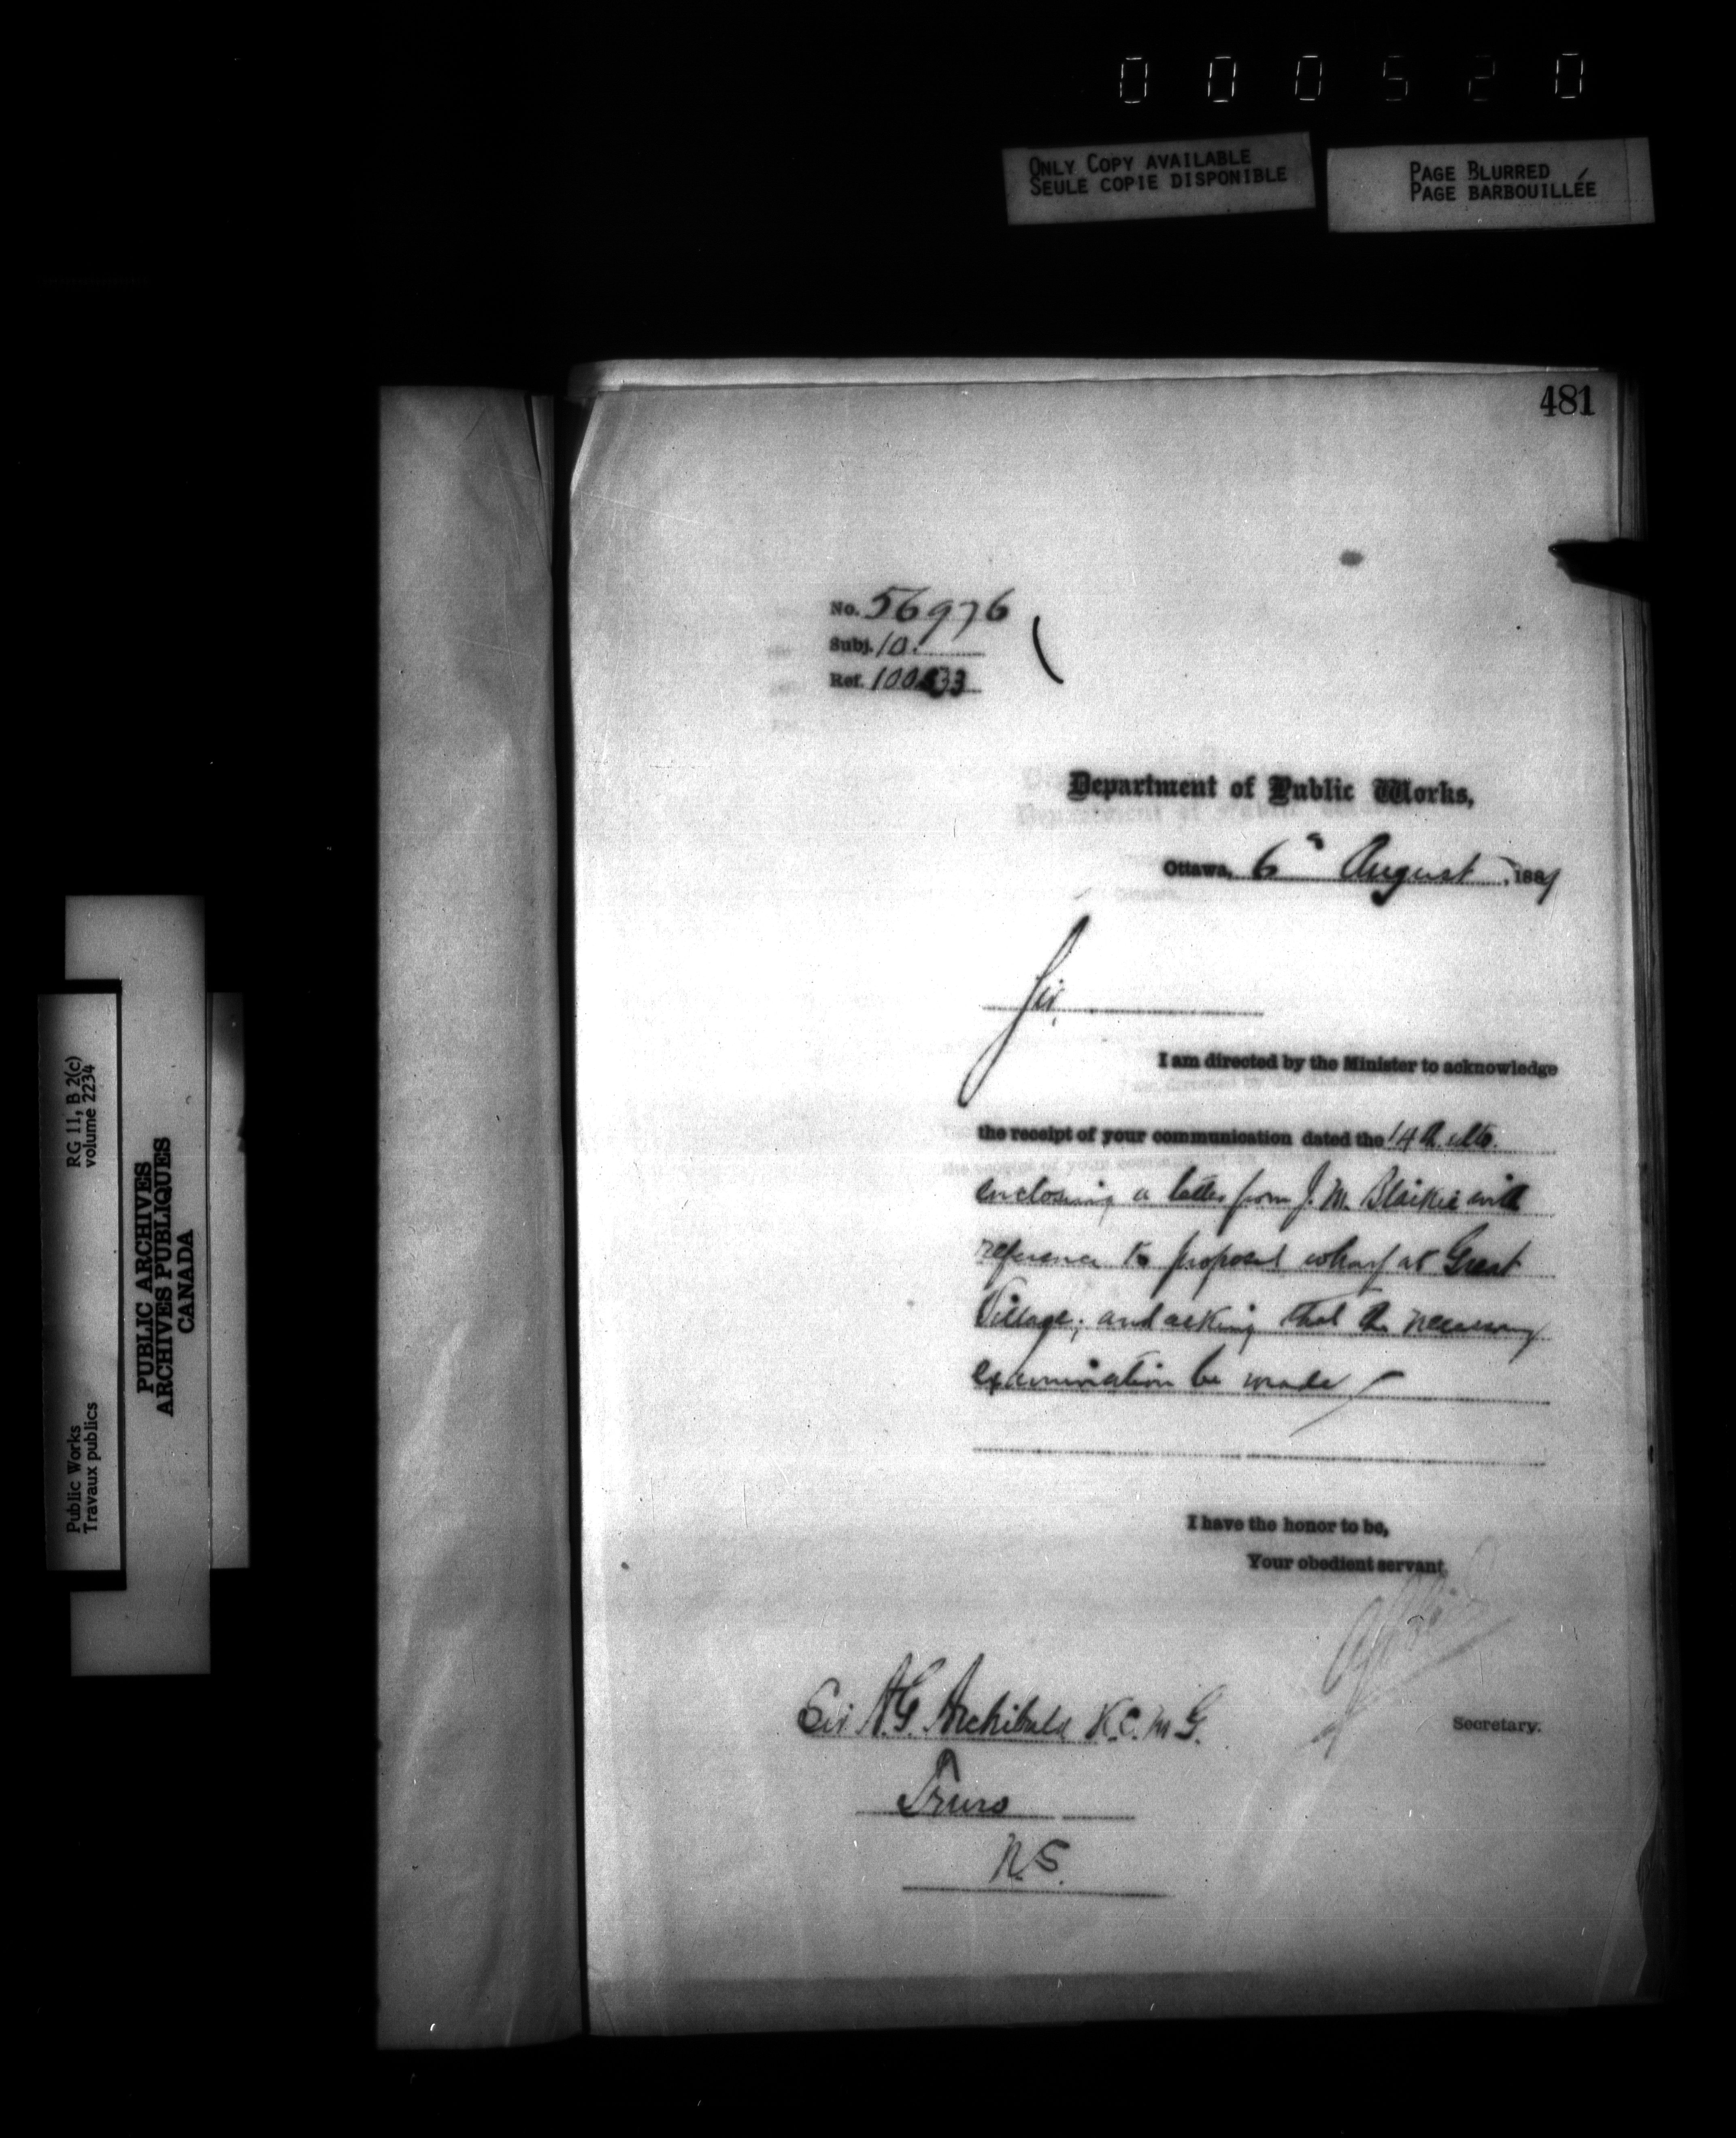 000520
ONLY COPY AVAILABLE
SEULE COPIE DISPONIBLE
PAGE BLURRED
PAGE BARBOUILLÉE
481
No. 56976
Subj. 10.
Ref.
Department of Public Works,
Ottawa, 6th August, 188
Sir,
I am directed by the Minister to acknowledge
the receipt of your communication dated the 14th ulto.
enclosing a letter from J. M. Blaikie with
reference to proposed wharf at Great
Village; and asking that the necessary
examination be made
I have the honor to be,
Your obedient servant,
Secretary.
Sir A.G. Archibald K.C.M.G.
Truro
N.S.
RG 11, B 2(c)
volume 2234
Public Works
Travaux publics
PUBLIC ARCHIVES
ARCHIVES PUBLIQUES
CANADA